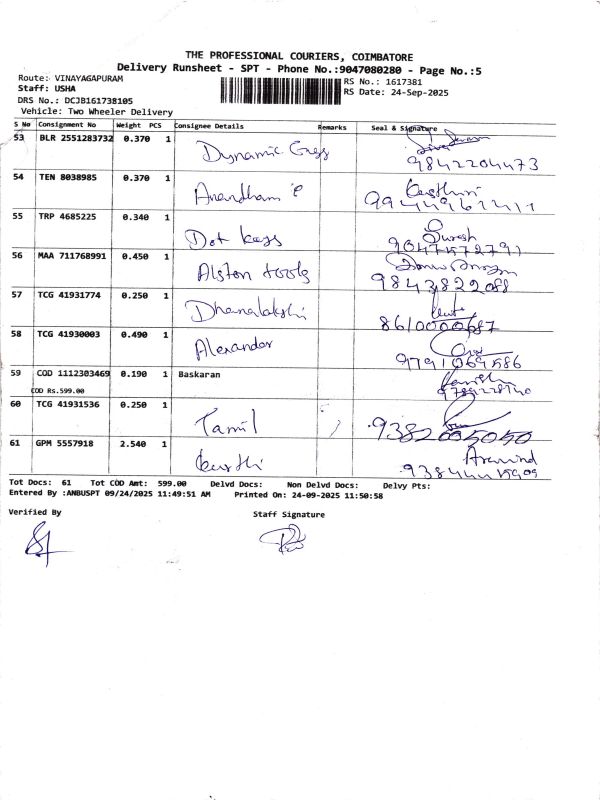 THE PROFESSIONAL COURIERS, COIMBATORE
Delivery Runsheet - SPT - Phone No.:9047080280 - Page No.:5
Route: VINAYAGAPURAM RS No.: 1617381
Staff: USHA RS Date: 24-Sep-2025
DRS No.: DCJB161738105
Vehicle: Two Wheeler Delivery
S No Consignment No Weight PCS Consignee Details Remarks Seal & Signature
53 BLR 2551283732 0.370 1 Dynamic 9842204473
54 TEN 8038985 0.370 1 Anandham
55 TRP 4685225 0.340 1 Dot kags Suresh
56 MAA 711768991 0.450 1 Alston tools 9843822088
57 TCG 41931774 0.250 1 Dhanalakshi
58 TCG 41930003 0.490 1 Alexander 9791069586
59 COD 1112303469 0.190 1 Baskaran
COD Rs.599.00
60 TCG 41931536 0.250 1 Tamil 9382005050
61 GPM 5557918 2.540 1 Aravind
Tot Docs: 61 Tot COD Amt: 599.00 Delvd Docs: Non Delvd Docs: Delvy Pts:
Entered By :ANBUSPT 09/24/2025 11:49:51 AM Printed On: 24-09-2025 11:50:58
Verified By Staff Signature